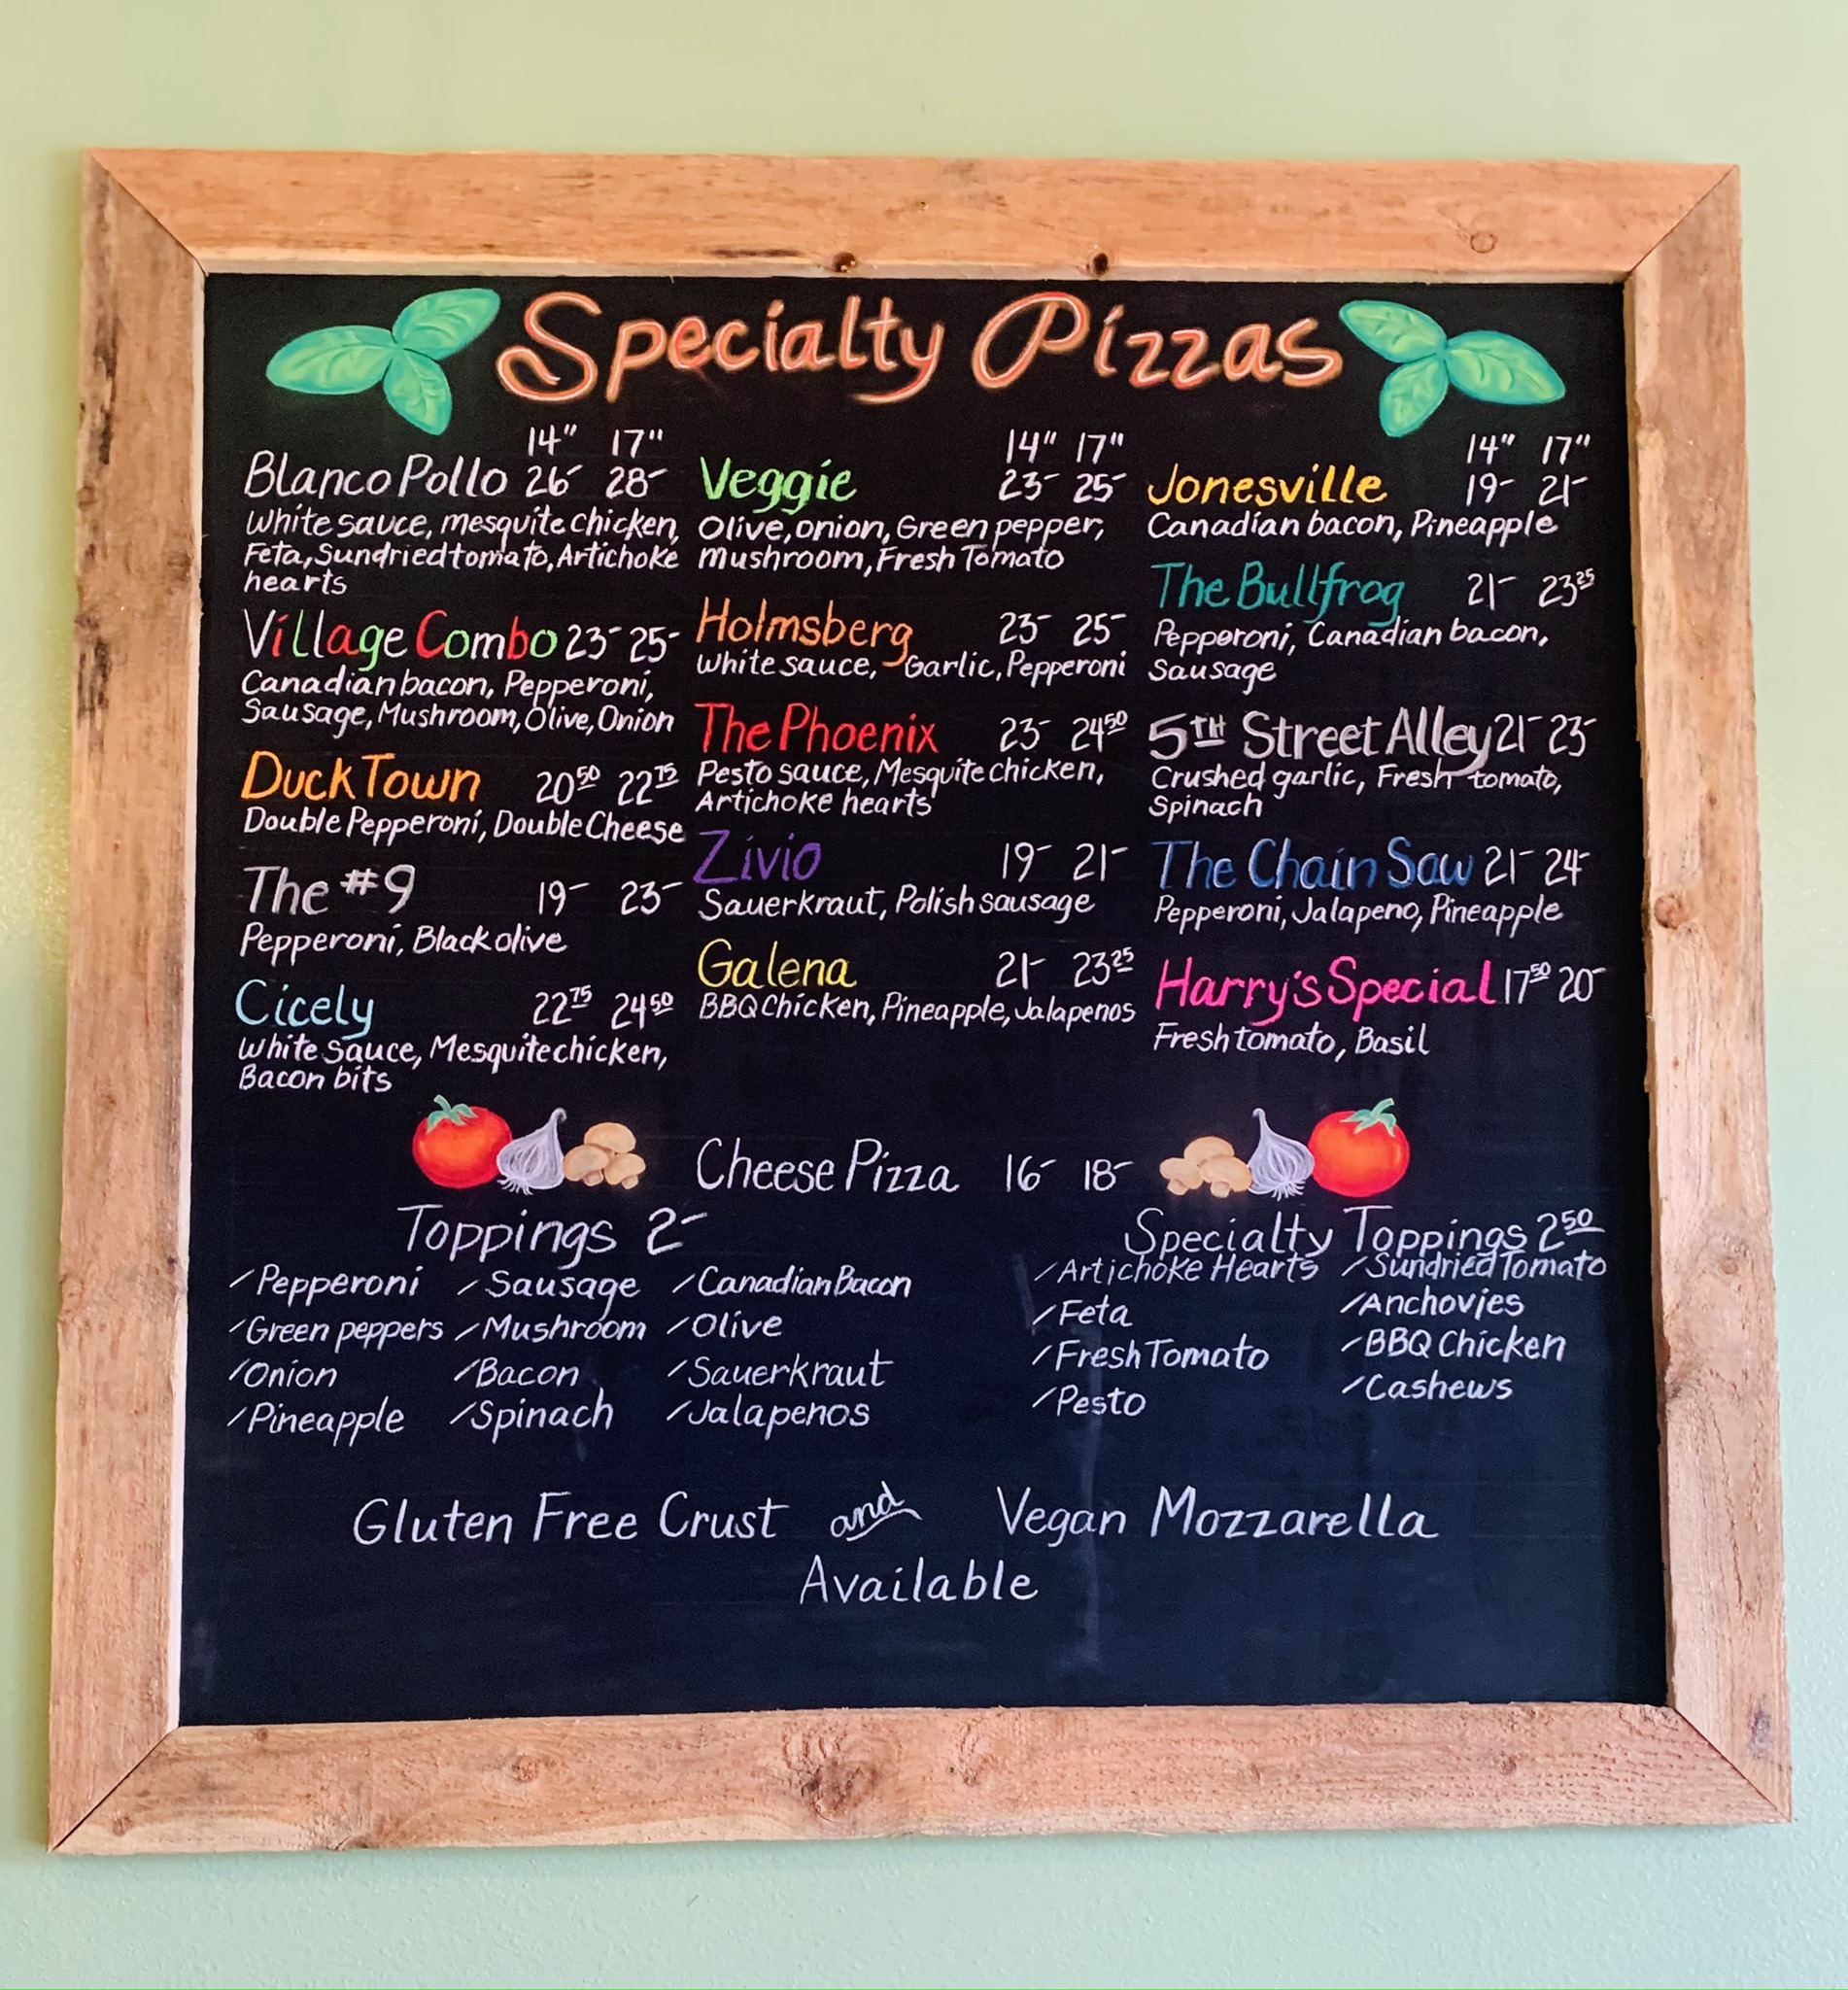 Specialty Pizzas
14" 17"
Blanco Pollo 26- 28-
White sauce, mesquite chicken,
Feta, Sundried tomato, Artichoke
hearts
Village Combo 23- 25-
Canadian bacon, Pepperoni,
Sausage, Mushroom, Olive, Onion
Duck Town 20 50 22 75
Double Pepperoni, Double Cheese
The #9 19- 23-
Pepperoni, Black olive
Cicely 22 75 24 50
White Sauce, Mesquite chicken,
Bacon bits
14" 17"
Veggie 23- 25-
Olive, onion, Green pepper,
Mushroom, Fresh Tomato
Holmsberg 23- 25-
White sauce, Garlic, Pepperoni
The Phoenix 23- 24 50
Pesto sauce, Mesquite chicken,
Artichoke hearts
Zivio 19- 21-
Sauerkraut, Polish sausage
Galena 21- 23 25
BBQ Chicken, Pineapple, Jalapenos
14" 17"
Jonesville 19- 21-
Canadian bacon, Pineapple
The Bullfrog 21- 23 25
Pepperoni, Canadian bacon,
Sausage
5TH Street Alley 21- 23-
Crushed garlic, Fresh tomato,
Spinach
The Chain Saw 21- 24-
Pepperoni, Jalapeno, Pineapple
Harry's Special 17 50 20-
Fresh tomato, Basil
Cheese Pizza 16- 18-
Toppings 2-
/Pepperoni /Sausage /Canadian Bacon
/Green peppers /Mushroom /Olive
/Onion /Bacon /Sauerkraut
/Pineapple /Spinach /Jalapenos
Specialty Toppings 2 50
/Artichoke Hearts /Sundried Tomato
/Feta /Anchovies
/Fresh Tomato /BBQ Chicken
/Pesto /Cashews
Gluten Free Crust and Vegan Mozzarella
Available